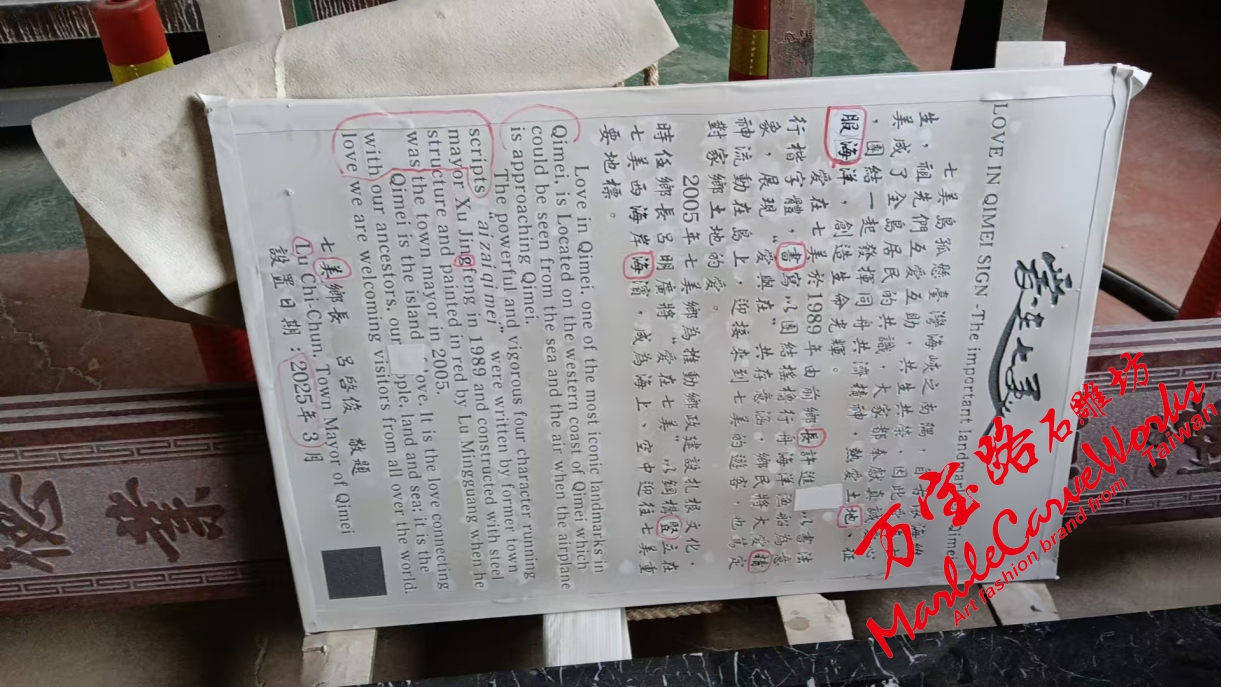 愛在七美
LOVE IN QIMEI SIGN-The important landmark Qimei
七美島孤懸臺灣海峽之南隅,
生,祖先們互愛互助,共生共榮,因此
美成了全島居民的共識,大家都奉獻真誠 心
,團結一起發揮同舟共濟精神、熱愛土地、征
服海洋,創造生命光輝。
愛在七美於1989年由前鄉長許進 以書法
行楷字體,書寫以團結搖櫓行舟海洋漁船為意
象,展現“愛與在”共存意涵。鄉民將大愛精
神流動在島上,迎接來到七美的遊客,也
對家鄉土地的愛。
2005年七美鄉為推動鄉政建設扎根文化,
時任鄉長呂明廣將“愛在七美”以鋼構豎立在
七美西海岸海濱,成為海上、空中迎往七美重
要地標。
Love in Qimei, one of the most iconic landmarks in
Qimei, is Located on the western coast of Qimei which
could be seen from the sea and the air when the airplane
is approaching Qimei.
The powerful and vigorous four character running
scripts “ai zai qi mei” were written by former town
mayor Xu Jingfeng in 1989 and constructed with steel
structure and painted in red by Lu Mingguang when he
was the town mayor in 2005.
Qimei is the island love. It is the love connecting
with our ancestors, our ople, land and sea; it is the
love we are welcoming visitors from all over the world.
七美鄉長 呂啓俊 敬題
Lu Chi-Chun, Town Mayor of Qimei
設置日期:2025年3月
万宝路石雕坊
MarbleCarveWorks
Art fashion brand from Taiwan